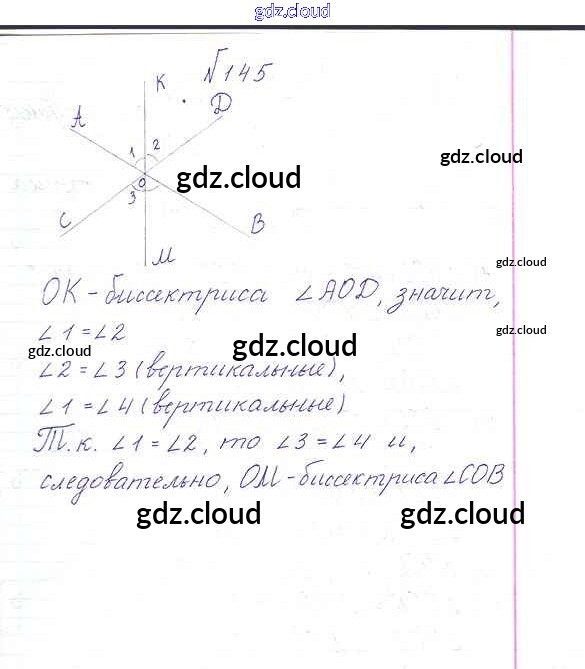 gdz.cloud
№145
К
А
Д
1 2
gdz.cloud
gdz.cloud
О
3
С
В
М
gdz.cloud
ОК - биссектриса ∠АОD, значит,
∠1 = ∠2
gdz.cloud
gdz.cloud
gdz.cloud
∠2 = ∠3 (вертикальные),
∠1 = ∠4 (вертикальные)
Т.к. ∠1 = ∠2, то ∠3 = ∠4 и,
следовательно, ОМ - биссектриса ∠СОВ
gdz.cloud
gdz.cloud